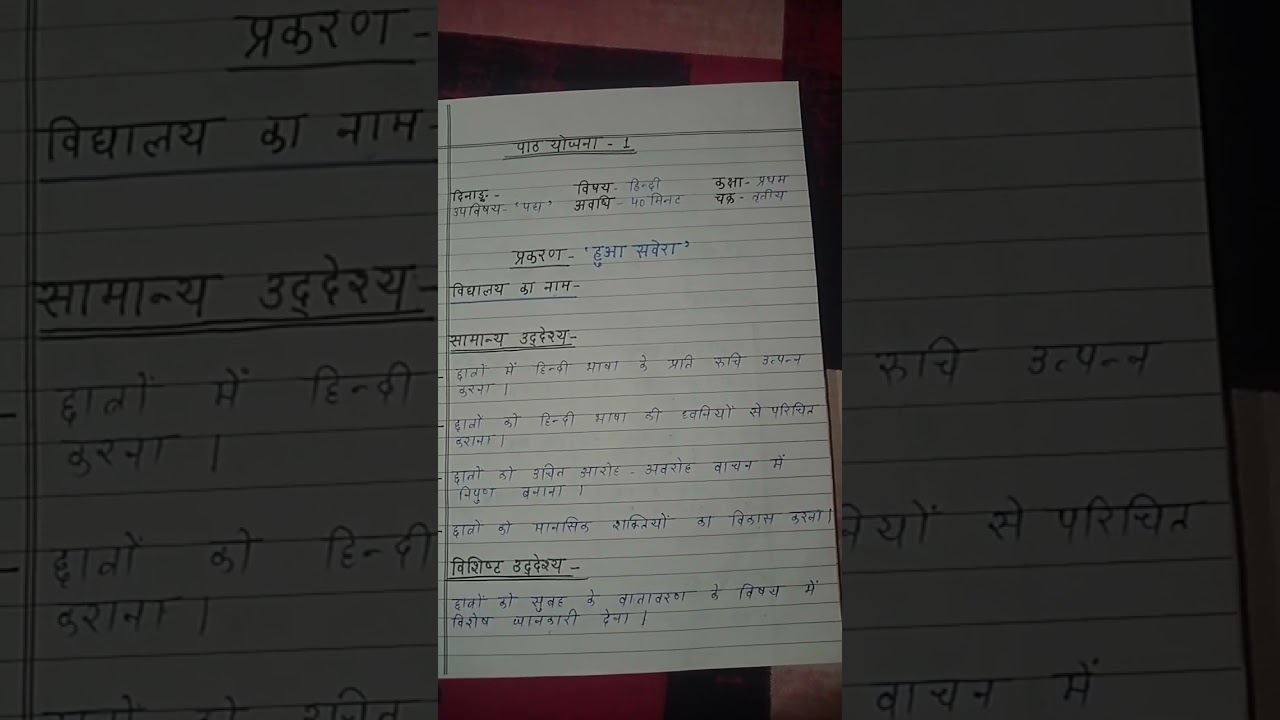 पाठ योजना - 1
दिनाङ्क - विषय - हिन्दी कक्षा - प्रथम
उपविषय - 'पद्य' अवधि - 40 मिनट चक्र - तृतीय
प्रकरण - 'हुआ सवेरा'
विद्यालय का नाम -
सामान्य उद्देश्य -
- छात्रों में हिन्दी भाषा के प्रति रुचि उत्पन्न
करना ।
- छात्रों को हिन्दी भाषा की ध्वनियों से परिचित
कराना ।
- छात्रों को उचित आरोह - अवरोह वाचन में
निपुण बनाना ।
- छात्रों की मानसिक शक्तियों का विकास करना ।
विशिष्ट उद्देश्य -
छात्रों को सुबह के वातावरण के विषय में
विशेष जानकारी देना ।
प्रकरण -
विद्यालय का नाम -
सामान्य उद्देश्य -
- छात्रों में हिन्दी
करना ।
- छात्रों को हिन्दी
कराना ।
रुचि उत्पन्न
नियों से परिचित
वाचन में